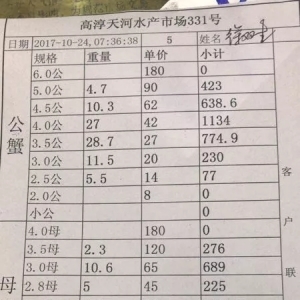 高淳天河水产市场331号
日期 2017-10-24, 07:36:38 5 姓名
规格 重量 单价 小计
6.0公 180 0
5.0公 4.7 90 423
4.5公 10.3 62 638.6
4.0公 27 42 1134
3.5公 28.7 27 774.9
3.0公 11.5 20 230
2.5公 5.5 14 77
2.0公 8 0
小公 0
公蟹
4.0母 180 0
3.5母 2.3 120 276
3.0母 10.6 65 689
2.8母 5 45 225
母
客户联